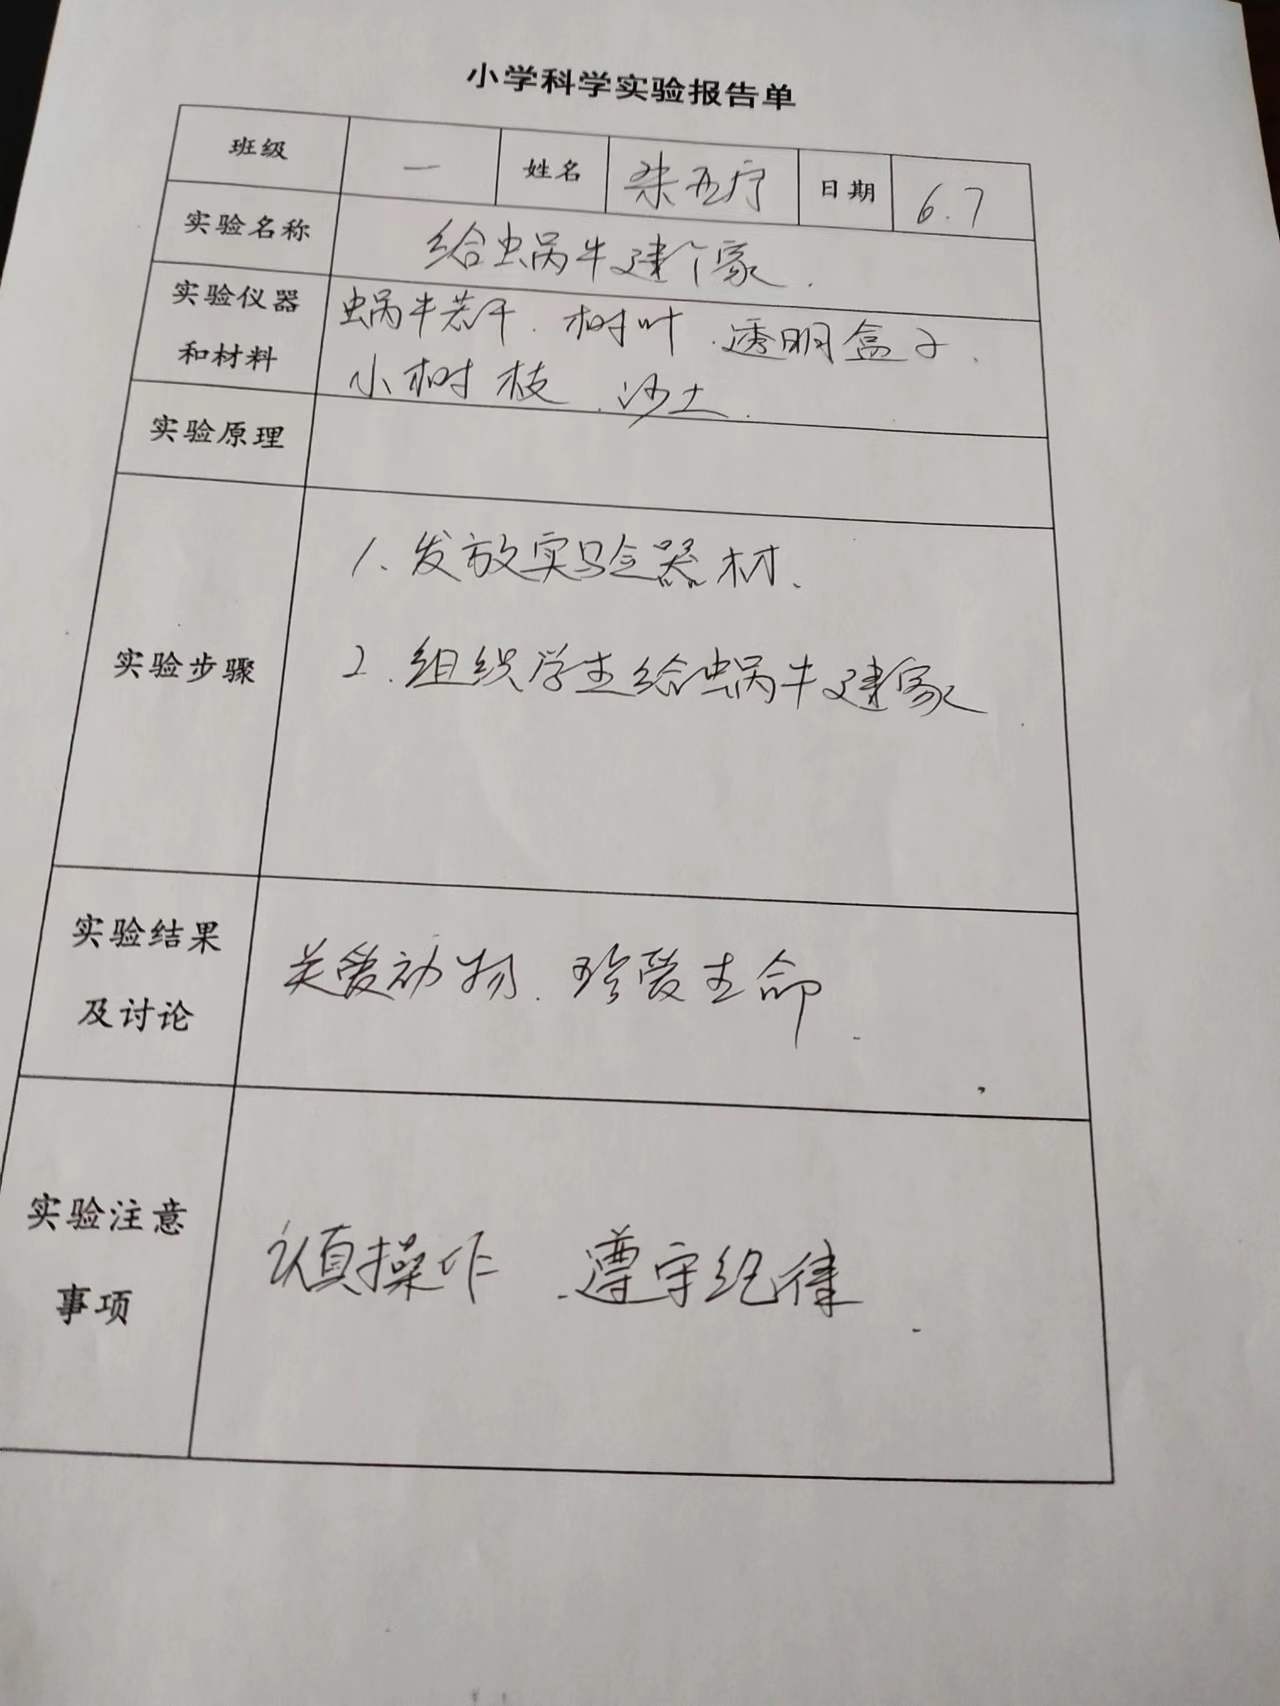 小学科学实验报告单
班级 一 姓名 日期 6.7
实验名称 给蜗牛建个家.
实验仪器和材料 蜗牛若干.树叶.透明盒子.
小树枝.沙土.
实验原理
实验步骤 1.发放实验器材.
2.组织学生给蜗牛建家.
实验结果及讨论 关爱动物.珍爱生命.
实验注意事项 认真操作.遵守纪律.